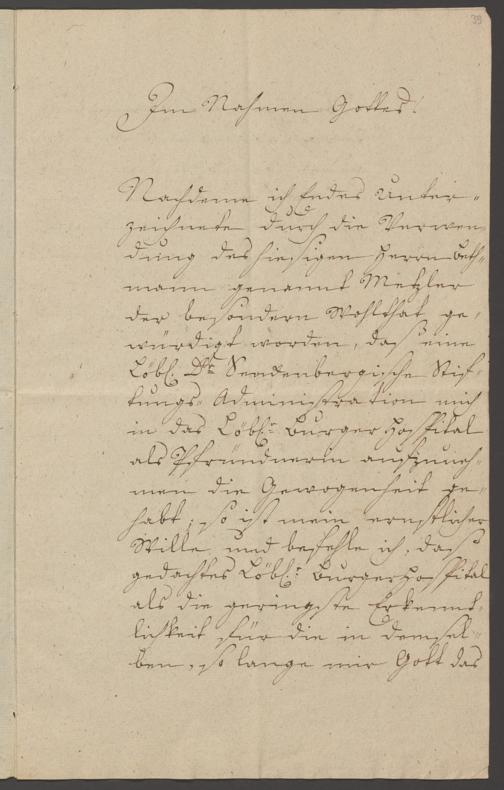 39
Im Nahmen Gottes!
Nachdeme ich Endes Unter-
zeichnete durch die Verwen
dung des hiesigen Herrn Beth-
mann genannt Metzler
der besondern Wohlthat ge-
würdigt worden, daß eine
Löbl. Dr. Senckenbergische Stif-
tungs-Administration mich
in das Löbl. Burger Hospital
als Pfründnerin aufzuneh-
men die Gewogenheit ge-
habt; so ist mein ernstlicher
Wille und befehle ich, daß
gedachtes Löbl. Burgerhospital
als die geringste Erkennt-
lichkeit für die in demsel-
ben, so lange mir Gott das